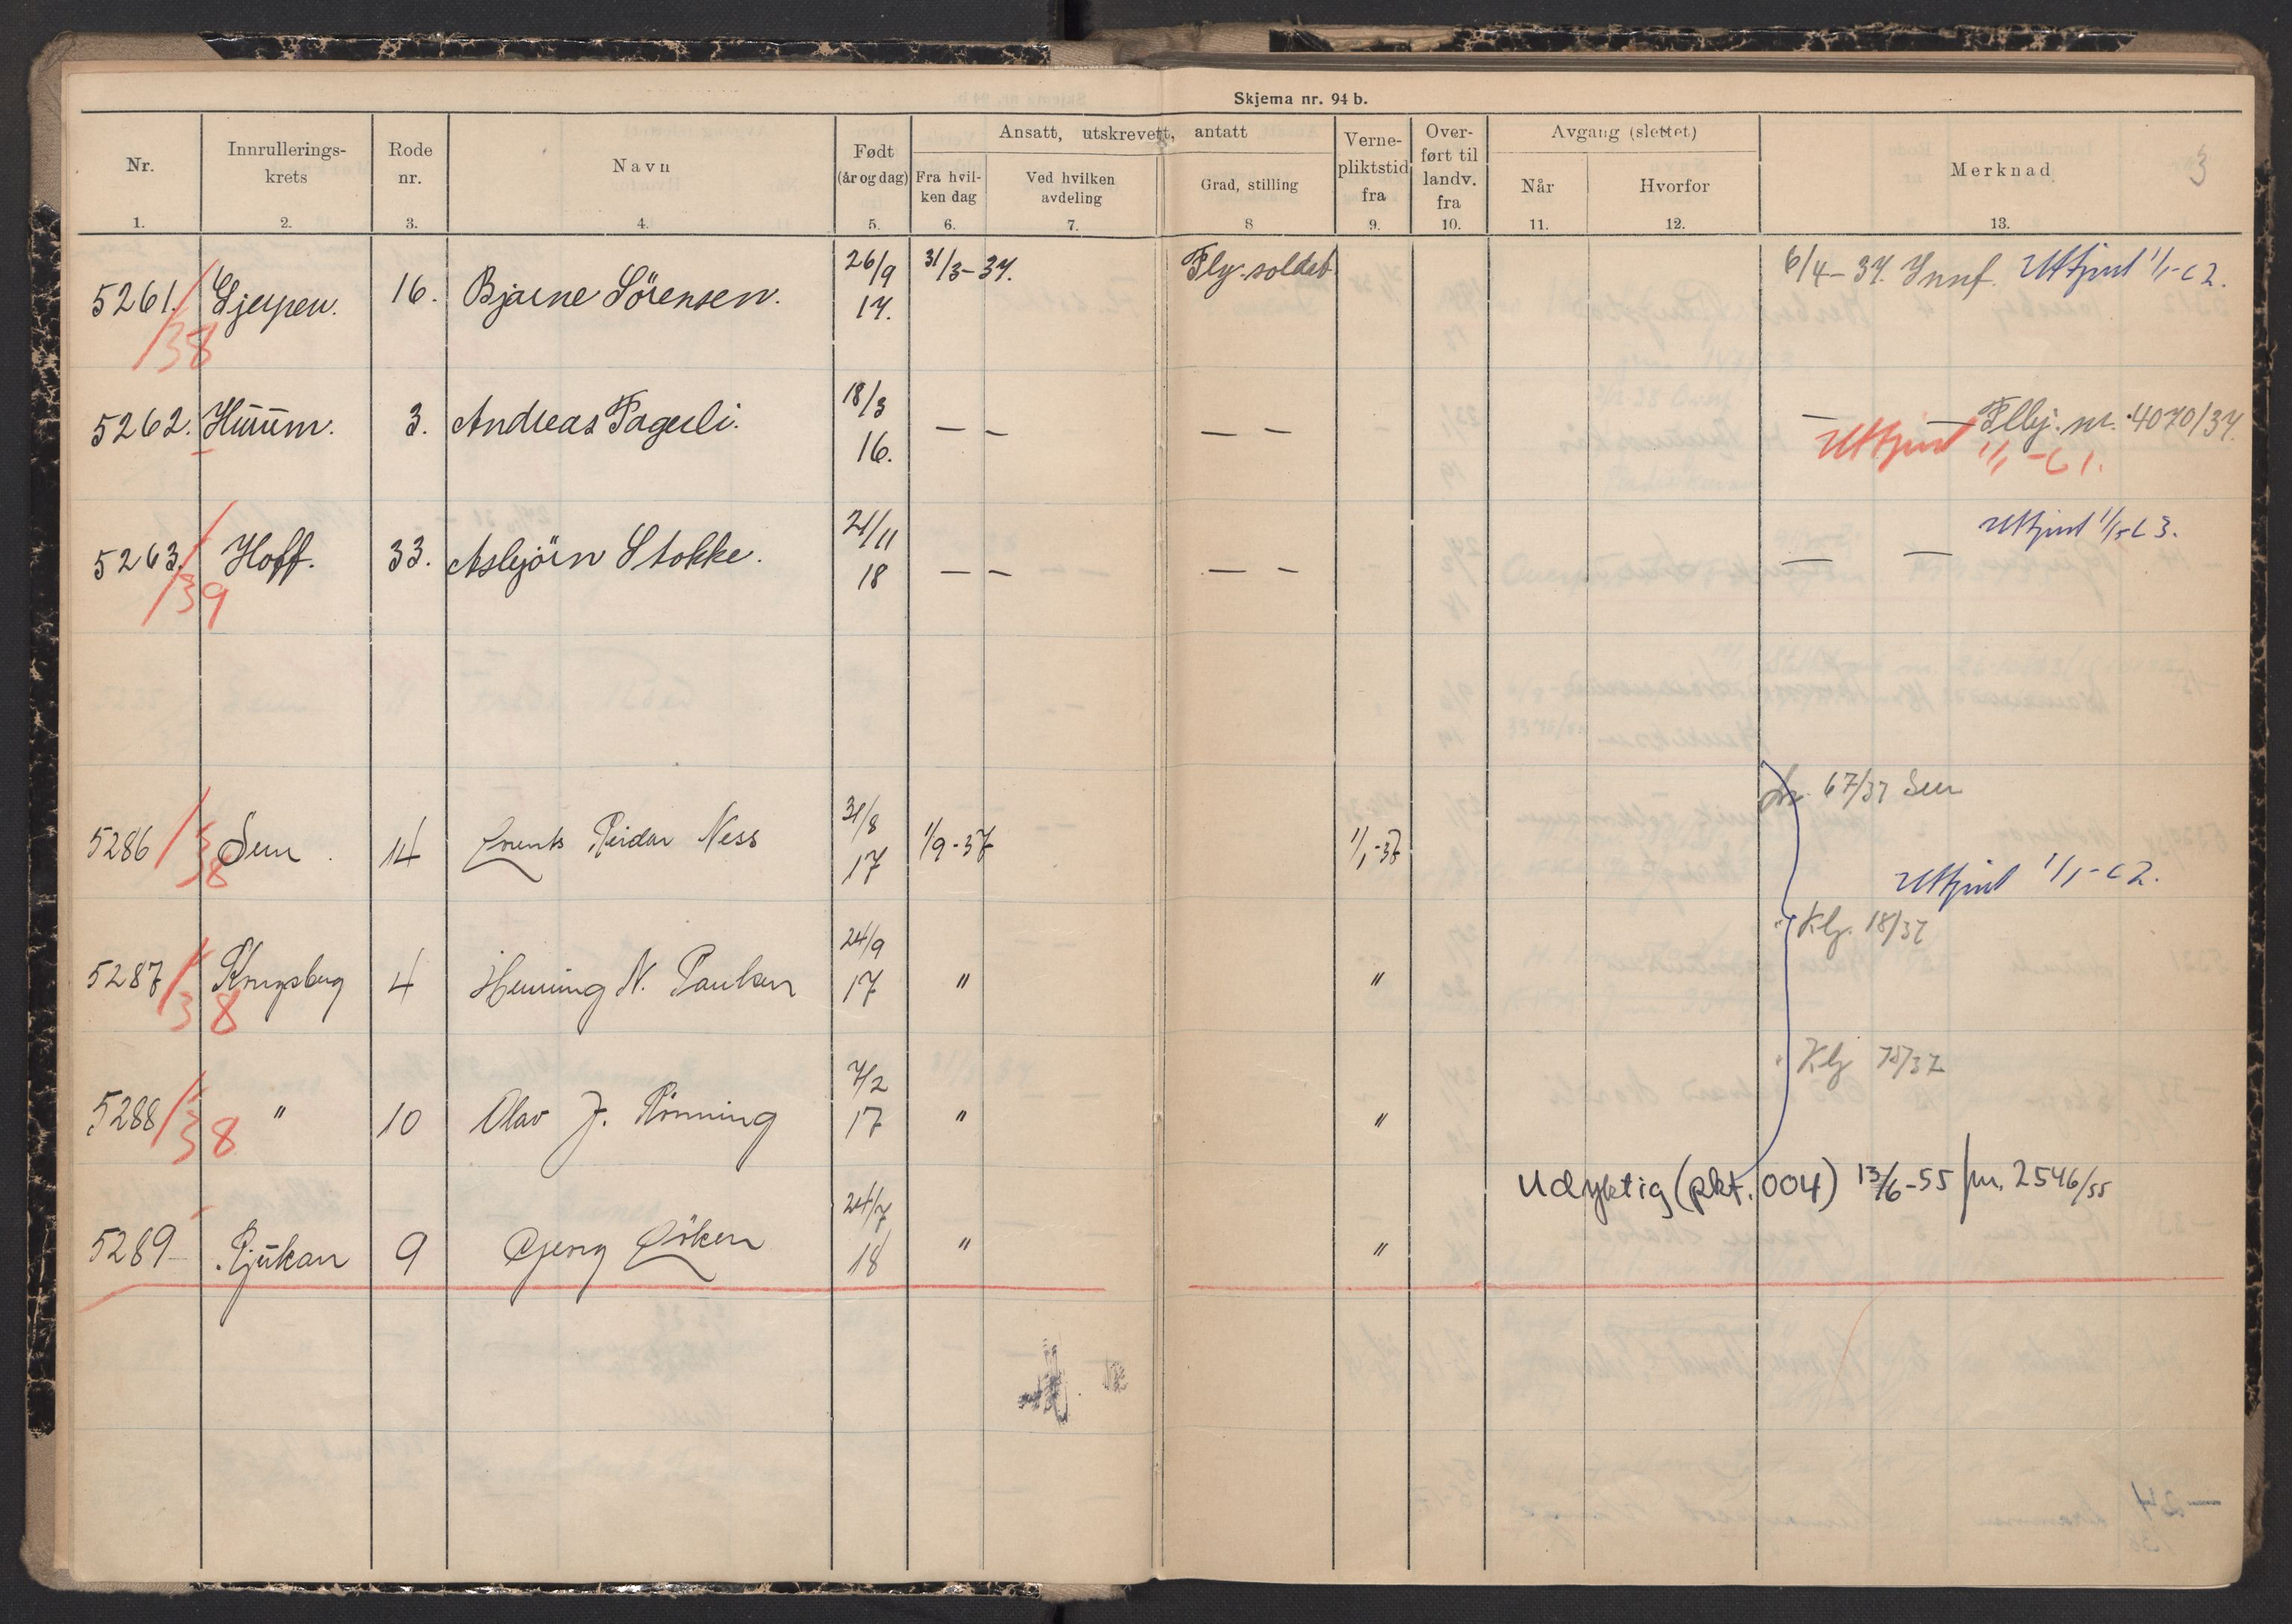 Skjema nr. 94 b.
Nr. Innrullerings-krets Rode nr. Navn Født (år og dag) Ansatt, utskrevett, antatt Verne-pliktstid fra Over-ført til landv. fra Avgang (slettet) Merknad 3
Fra hvil-ken dag Ved hvilken avdeling Grad, stilling Når Hvorfor
1. 2. 3. 4. 5. 6. 7. 8 9. 10. 11. 12. 13.
5261. Gjerpen. 16. Bjarne Sörensen. 26/9 17. 31/3-37. Fly.soldat 6/4-37. Innf. Uttjent 1/1-62.
/38
5262. Hurum. 3. Andreas Fagerli. 18/3 16. — — — — — — Flbj. nr. 4070/37.
Uttjent 1/1-61.
5263. Hoff. 33. Asbjörn Stokke. 21/11 18 — — — — — — Uttjent 1/1-63.
/39
5286 Sem 14 Lorents Reidar Ness 31/8 17 1/9-37 1/1-37 67/37 Sem
/38
Uttjent 1/1-62.
5287 Kongsberg 4 Henning N. Paulsen 24/9 17 " " " Kbj. 18/37
/38
5288 " 10 Olav J. Rönning 7/2 17 " " " Kbj
/38
Udyktig (pkt. 004) 13/6-55 jnr. 2546/55
5289 Rjukan 9 Georg Löken 24/7 18 " "